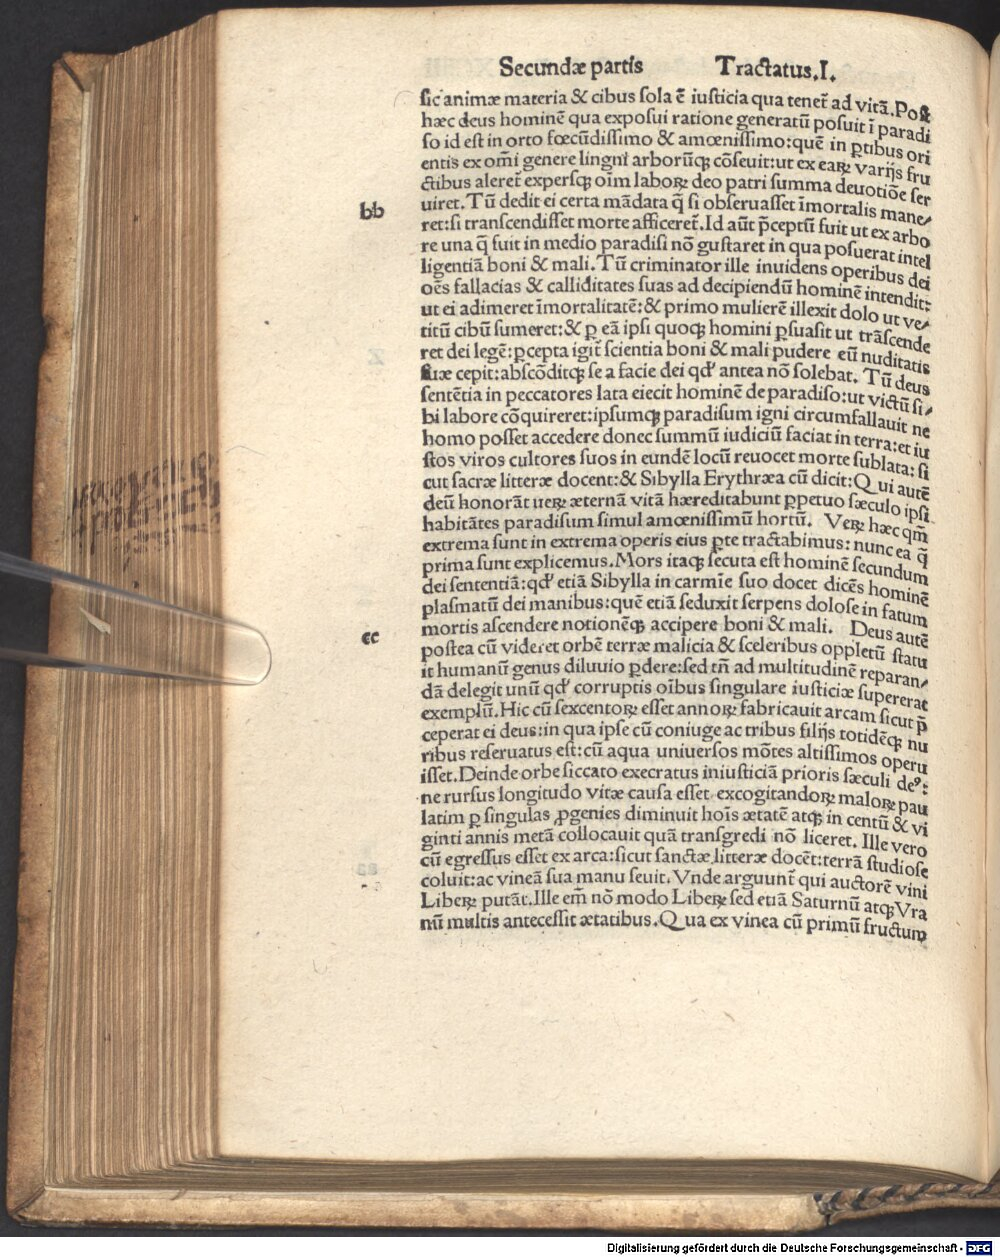 Secundæ partis Tractatus.I.
sic animæ materia & cibus sola ē iusticia qua tenet̃ ad vitā.Post
hæc deus hominē qua exposui ratione generatū posuit ī paradi
so id est in orto fœcūdissimo & amœnissimo:quē in ꝑtibus ori
entis ex om̄i genere lingni arborūqꝫ cōseuit:ut ex eaꝝ varijs fru
ctibus aleret̃ expersqꝫ oīm laboꝝ deo patri summa deuotiōe ser
bb
uiret.Tū dedit ei certa mādata q̄ si obseruasset īmortalis mane/
ret:si transcendisset morte afficeret̃.Id aūt p̄ceptū fuit ut ex arbo
re una q̄ fuit in medio paradisi nō gustaret in qua posuerat intel
ligentiā boni & mali.Tū criminator ille inuidens operibus dei
oēs fallacias & calliditates suas ad decipiendū hominē intendit:
ut ei adimeret īmortalitatē:& primo mulierē illexit dolo ut ve/
titū cibū sumeret:& ꝑ eā ipsi quoqꝫ homini ꝑsuasit ut trāscende
ret dei legē:ꝑcepta igit̃ scientia boni & mali pudere eū nuditatis
suæ cepit:abscōditqꝫ se a facie dei qd' antea nō solebat. Tū deus
sentētia in peccatores lata eiecit hominē de paradiso:ut victū si/
bi labore cōquireret:ipsumqꝫ paradisum igni circumfallauit ne
homo posset accedere donec summū iudiciū faciat in terra:et iu
stos viros cultores suos in eundē locū reuocet morte sublata: si
cut sacræ litteræ docent:& Sibylla Erythræa cū dicit:Qui autē
deū honorāt ueꝝ æternā vitā hæreditabunt ꝑpetuo sæculo ipsi
habitātes paradisum simul amœnissimū hortū. Veꝝ hæc qm̄
extrema sunt in extrema operis eius ꝑte tractabimus: nunc ea q̄
prima sunt explicemus.Mors itaqꝫ secuta est hominē secundum
dei sententiā:qd' etiā Sibylla in carmīe suo docet dicēs hominē
plasmatū dei manibus:quē etiā seduxit serpens dolose in fatum
mortis ascendere notionēqꝫ accipere boni & mali. Deus autē
cc
postea cū videret orbē terræ malicia & sceleribus oppletū statu
it humanū genus diluuio ꝑdere:sed tn̄ ad multitudinē reparan/
dā delegit unū qd' corruptis oībus singulare iusticiæ supererat
exemplū.Hic cū sexcentoꝝ esset annoꝝ fabricauit arcam sicut p̄
ceperat ei deus:in qua ipse cū coniuge ac tribus filijs totidēqꝫ nu
ribus reseruatus est:cū aqua uniuersos mōtes altissimos operu
isset.Deinde orbe siccato execratus iniusticiā prioris sæculi deꝰ:
ne rursus longitudo vitæ causa esset excogitandoꝝ maloꝝ pau
latim ꝑ singulas ꝓgenies diminuit hoīs ætatē atqꝫ in centū & vi
ginti annis metā collocauit quā transgredi nō liceret. Ille vero
cū egressus esset ex arca:sicut sanctæ litteræ docēt:terrā studiose
coluit:ac vineā sua manu seuit.Vnde arguunt̃ qui auctorē vini
Libeꝝ putāt.Ille em̄ nō modo Libeꝝ sed etiā Saturnū atqꝫ Vra
nū multis antecessit ætatibus.Qua ex vinea cū primū fructum
Digitalisierung gefördert durch die Deutsche Forschungsgemeinschaft - DFG